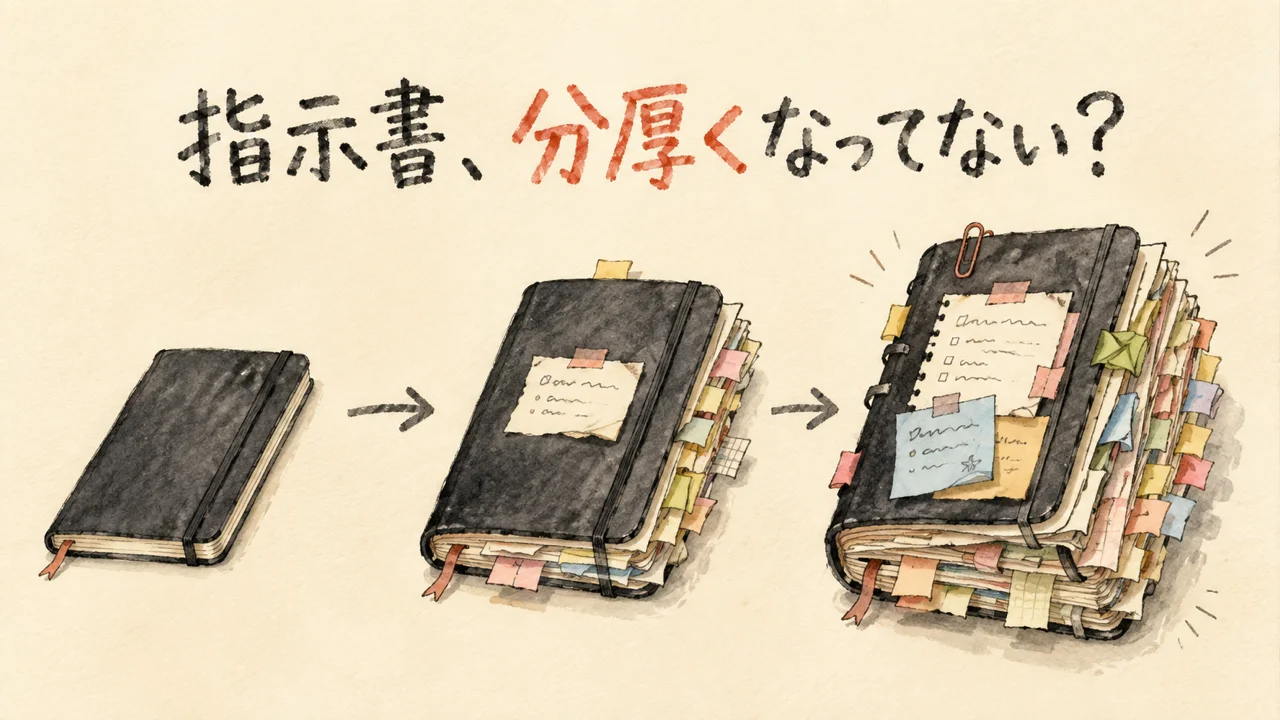 指示書、分厚くなってない?